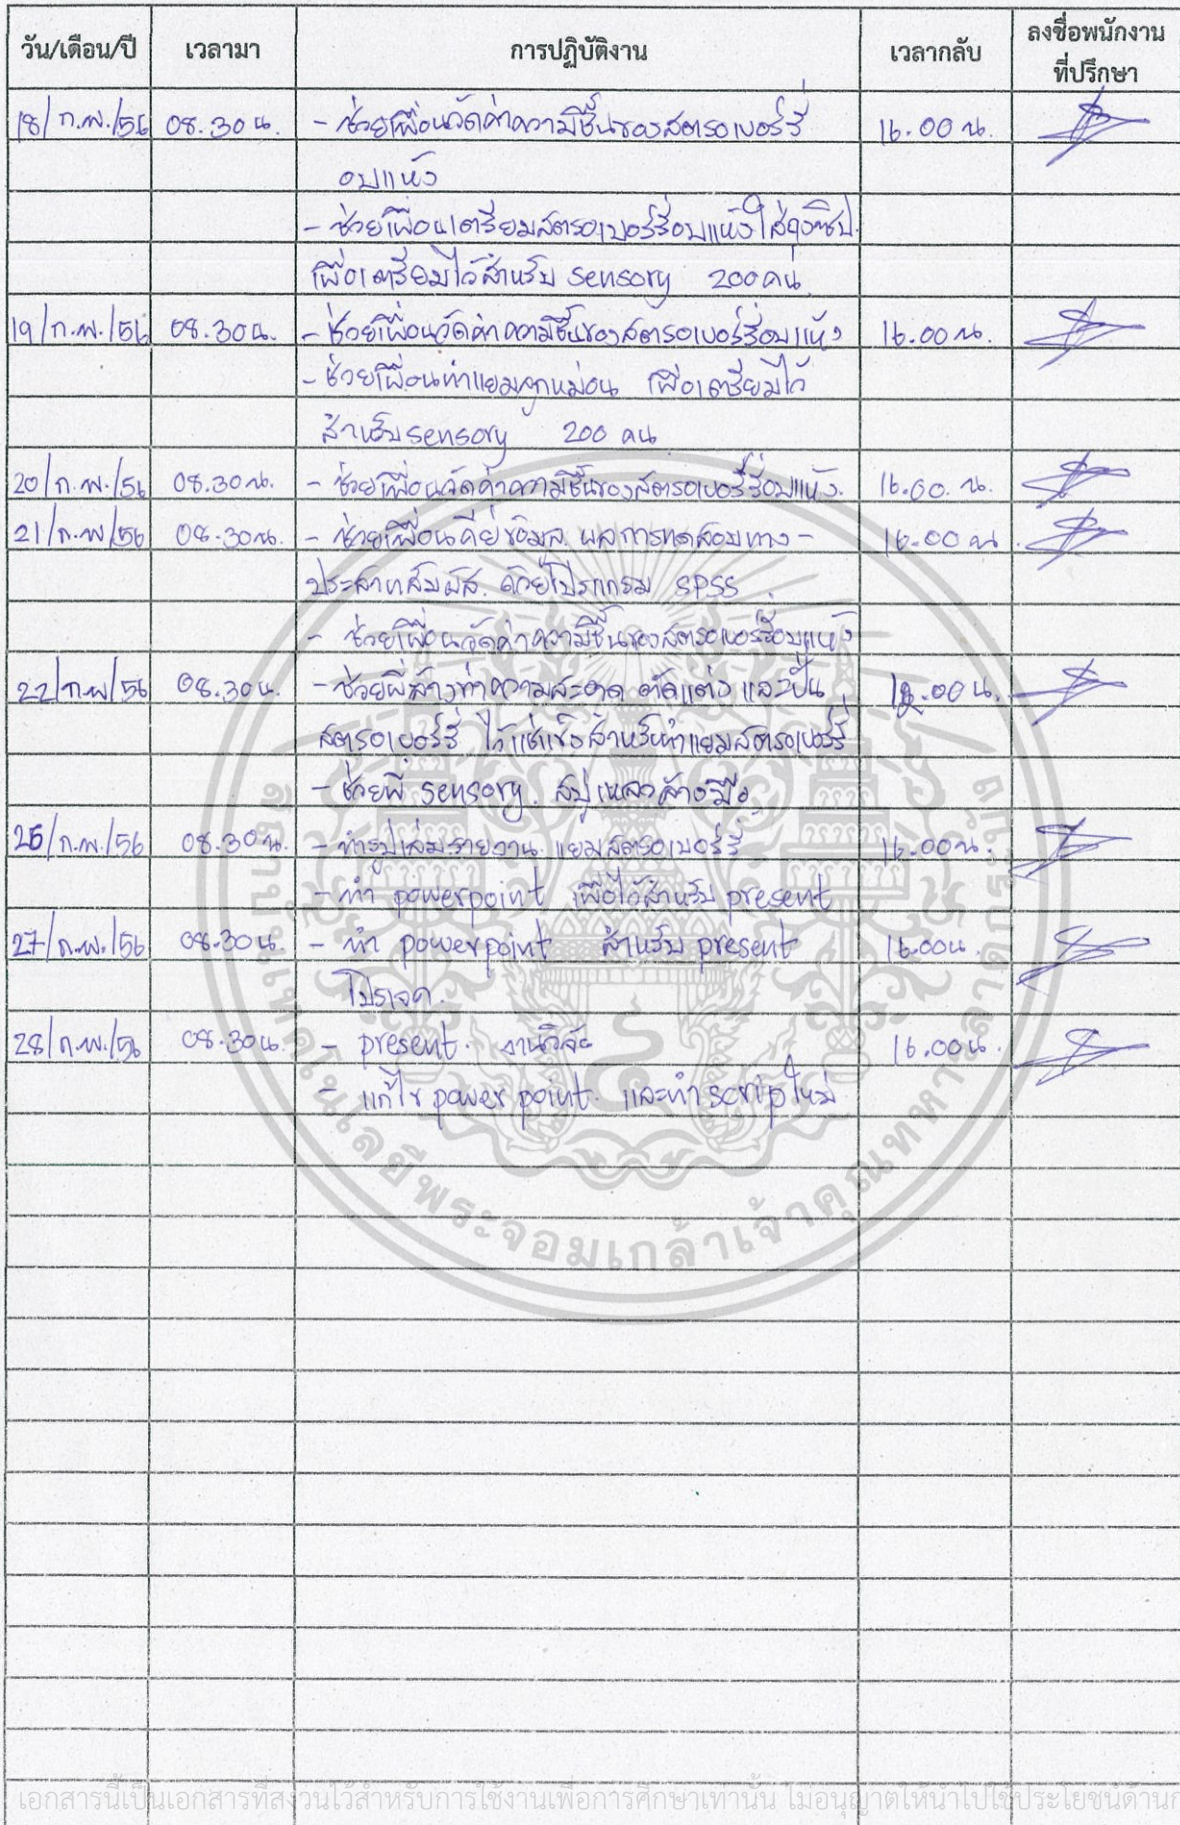 วัน/เดือน/ปี เวลามา การปฏิบัติงาน เวลากลับ ลงชื่อพนักงาน
ที่ปรึกษา
18/ก.พ./56 08.30 น. - ช่วยเพื่อนวัดค่าความชื้นของสตรอเบอร์รี่ 16.00 น.
อบแห้ง
- ช่วยเพื่อนเตรียมสตรอเบอร์รี่อบแห้งใส่ถุงซิป
เพื่อเตรียมไว้สำหรับ sensory 200 คน
19/ก.พ./56 08.30 น. - ช่วยเพื่อนวัดค่าความชื้นของสตรอเบอร์รี่อบแห้ง 16.00 น.
- ช่วยเพื่อนทำแยมลูกหม่อน เพื่อเตรียมไว้
สำหรับ sensory 200 คน
20/ก.พ./56 08.30 น. - ช่วยเพื่อนวัดค่าความชื้นของสตรอเบอร์รี่อบแห้ง. 16.00. น.
21/ก.พ/56 08.30 น. - ช่วยเพื่อนคีย์ข้อมูล ผลการทดสอบทาง- 16.00 น
ประสาทสัมผัส. ด้วยโปรแกรม SPSS
- ช่วยเพื่อนวัดค่าความชื้นของสตรอเบอร์รี่อบแห้ง
22/ก.พ/56 08.30 น. - ช่วยพี่ล้างทำความสะอาด ตัดแต่ง และปั่น .00 น.
สตรอเบอร์รี่ ไว้แช่แข็งสำหรับทำแยมสตรอเบอร์รี่
- ช่วยพี่ sensory. สบู่เหลวล้างมือ
/ก.พ./56 08.30 น. - ทำรูปเล่มรายงาน แยมสตรอเบอร์รี่ 16.00 น.
- ทำ powerpoint เพื่อไว้สำหรับ present
27/ก.พ./56 08.30 น. - ทำ powerpoint สำหรับ present 16.00 น.
โปรเจค.
28/ก.พ./56 08.30 น. - present. งานวิจัย 16.00 น.
- แก้ไข power point. และทำ scrip ใหม่
สถาบันเทคโนโลยีพระจอมเกล้าเจ้าคุณทหารลาดกระบัง
เอกสารนี้เป็นเอกสารที่สงวนไว้สำหรับการใช้งานเพื่อการศึกษาเท่านั้น ไม่อนุญาตให้นำไปใช้ประโยชน์ด้านก